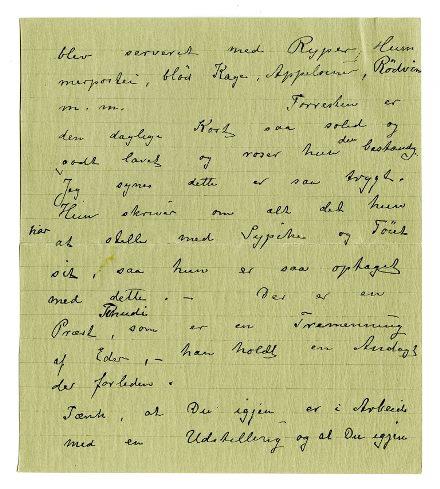 blev serveret med Ryper, Hum
merpostei, blöd Kage, Appelsiner, Rödvin
m. m. Forresten er
den daglige Kost saa solid og
godt lavet og roser hun den bestandig.
Jeg synes dette er saa trygt.
Hun skriver om alt det hun
har at stelle med Sypike og Töiet
sit, saa hun er saa optaget
med dette. – Der er en
Præst, Thudi som er en Tremenning
af Eder, – han holdt en Andagt
der forleden.
Tænk, at Du igjen er i Arbeide
med en Udstilling og at Du igjen